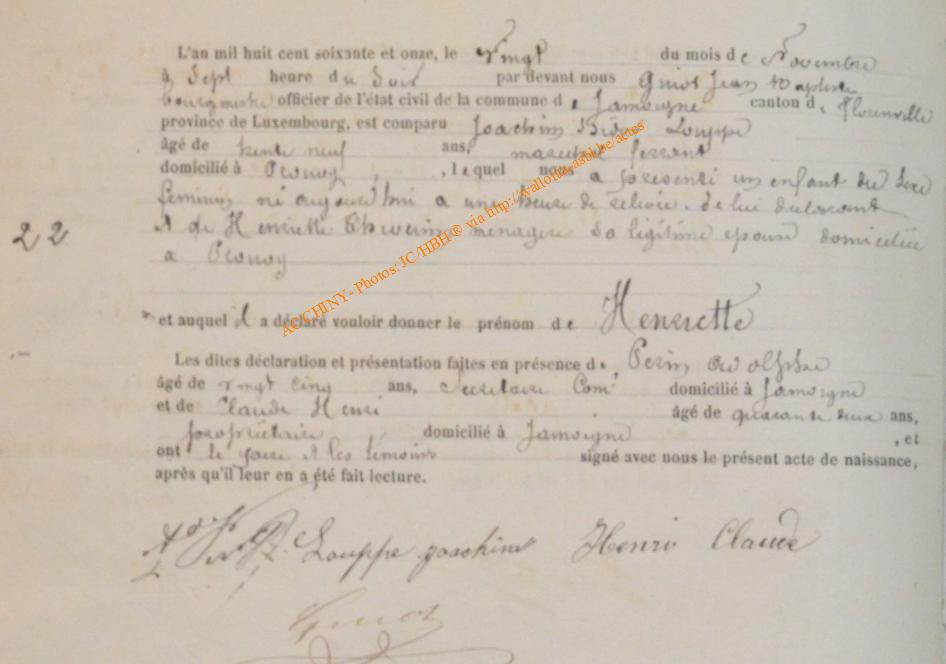 L'an mil huit cent soixante et onze, le vingt du mois de Novembre
à Sept heure du Soir par devant nous Guiot Jean Baptiste
bourgmestre officier de l'état civil de la commune de Jamoigne canton de Florenville
province de Luxembourg, est comparu Joachim Louppe
âgé de trente neuf ans, marechal ferrant
domicilié à Prouvy, lequel nous a présenté un enfant du Sexe
feminin né aujourd'hui a une heure de relevée. de lui declarant
22
et de Henriette menagere Sa légitime epouse domiciliée
a Prouvy
et auquel il a déclaré vouloir donner le prénom de Henriette
Les dites déclaration et présentation faites en présence de, Perin Adolphe
âgé de vingt cinq ans, Secretaire Com domicilié à Jamoigne
et de Claude Henri âgé de quarante deux ans,
propriétaire domicilié à Jamoigne, et
ont le père et les témoins signé avec nous le présent acte de naissance,
après qu'il leur en a été fait lecture.
Louppe joachim Henri Claude
Guiot
AC/CHINY - Photos: JC/HBH® via http://wallonia-asbl.be/actes